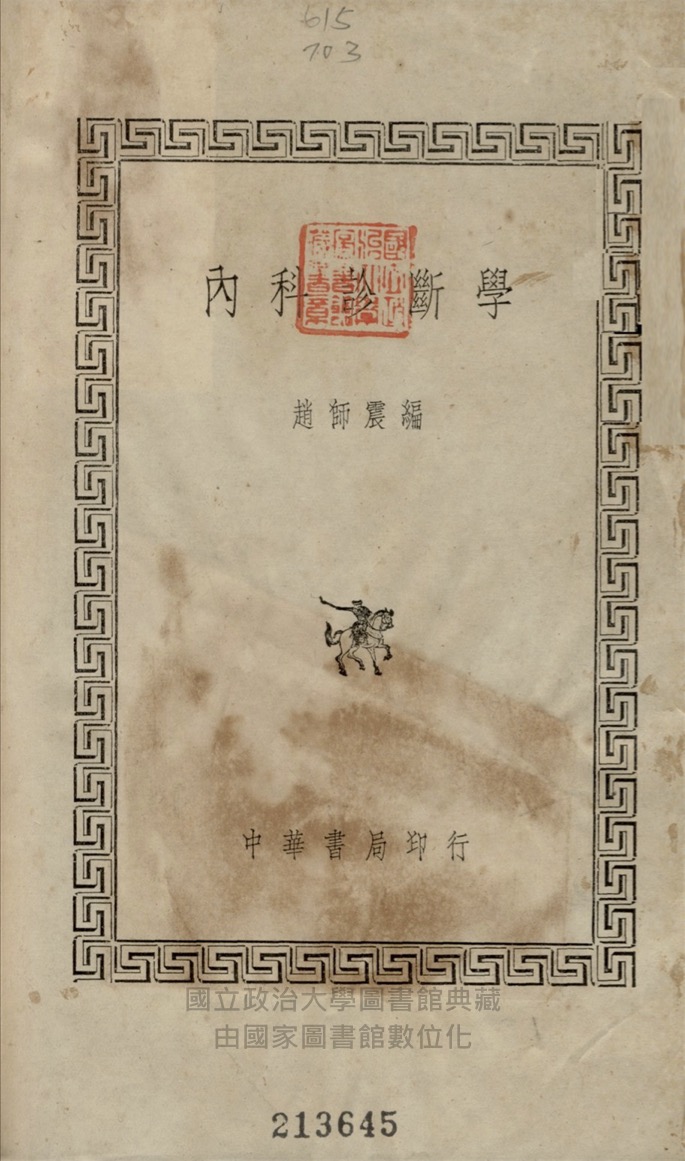 615
703
內科診斷學
趙師震編
中華書局印行
國立政治大學圖書館典藏
由國家圖書館數位化
213645